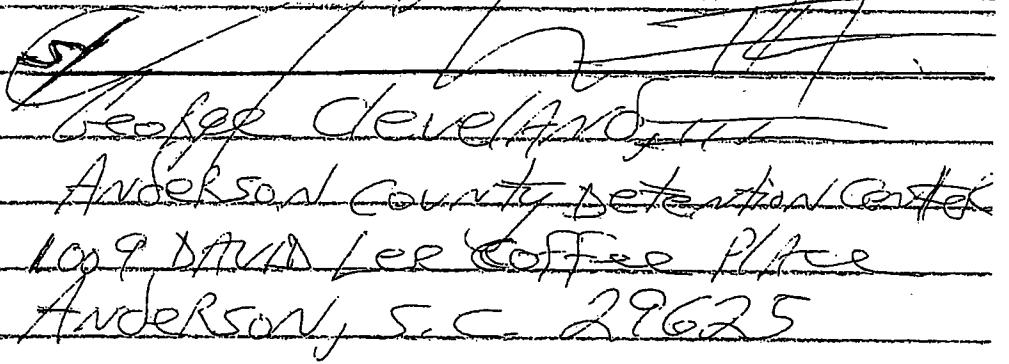 George Cleveland, III
Anderson County Detention Center
1009 David Lee Coffee Place
Anderson, S.C. 29625